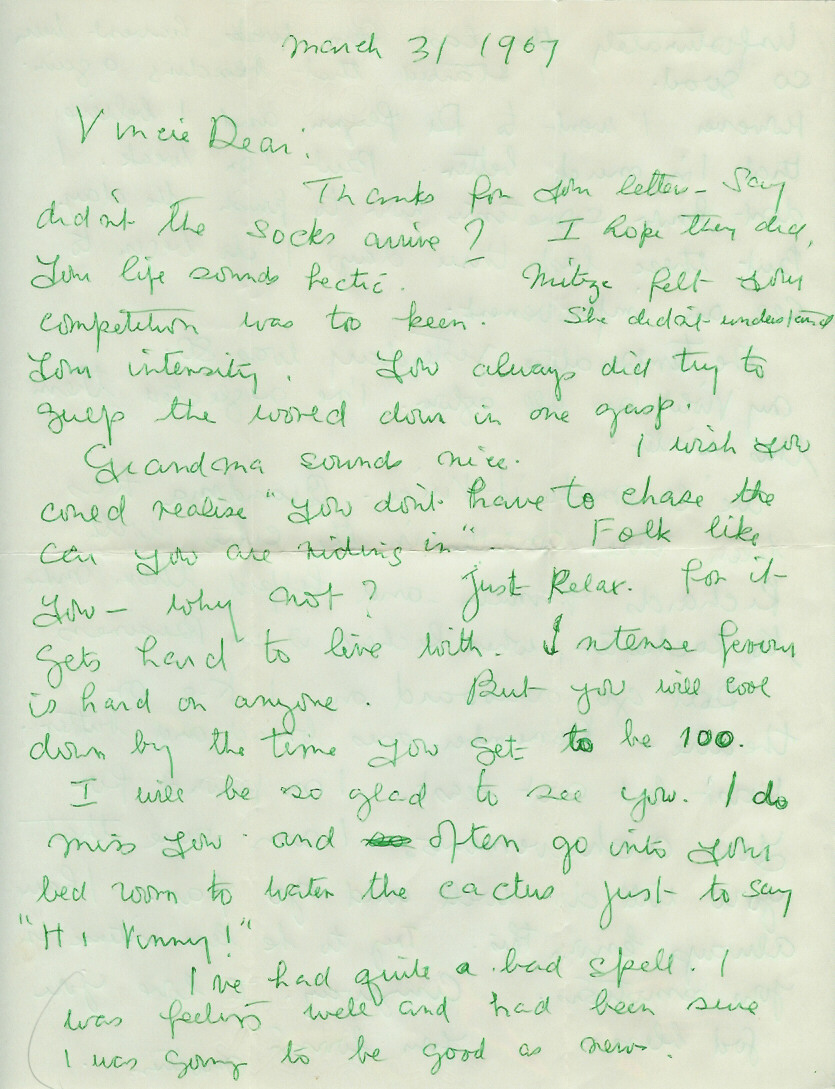 March 31 1967
Vincie Dear:
Thanks for your letter - Say
didn't the socks arrive? I hope they did,
Your life sounds hectic. Mitze felt your
competition was too keen. She didn't understand
your intensity. You always did try to
gulp the world down in one gasp.
Grandma sounds nice. I wish you
could realise "you don't have to chase the
car you are riding in". Folk like
you - why not? Just Relax. For it
gets hard to live with. Intense fervour
is hard on anyone. But you will cool
down by the time you get to be 100.
I will be so glad to see you. I do
miss you and often go into your
bed room to water the cactus just to say
"Hi Vinny!"
I've had quite a bad spell. I
was feeling well and had been sure
I was going to be good as new.